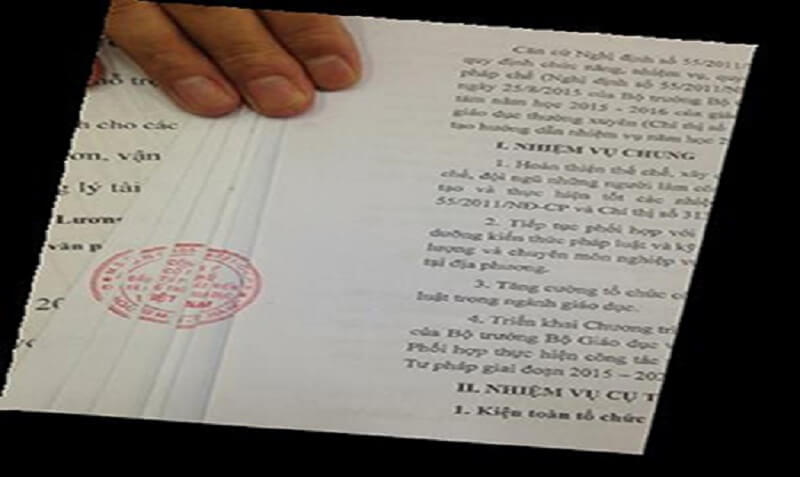 hỗ trợ
cho các
vận
lý tài
Lương
văn p
20
VIỆT NAM
Căn cứ Nghị định số 55/2011/
quy định chức năng, nhiệm vụ, quy
pháp chế (Nghị định số 55/2011/N
ngày 25/8/2015 của Bộ trưởng Bộ
tâm năm học 2015 - 2016 của giá
giáo dục thường xuyên (Chỉ thị số
tạo hướng dẫn nhiệm vụ năm học 2
I. NHIỆM VỤ CHUNG
1. Hoàn thiện thể chế, xây
chế, đội ngũ những người làm cô
tạo và thực hiện tốt các nhiệ
55/2011/NĐ-CP và Chỉ thị số 31
2. Tiếp tục phối hợp với
dưỡng kiến thức pháp luật và kỹ
lượng và chuyên môn nghiệp v
tại địa phương.
3. Tăng cường tổ chức c
luật trong ngành giáo dục.
4. Triển khai Chương trì
của Bộ trưởng Bộ Giáo dục
Phối hợp thực hiện công tác
Tư pháp giai đoạn 2015 – 20
II. NHIỆM VỤ CỤ T
1. Kiện toàn tổ chức